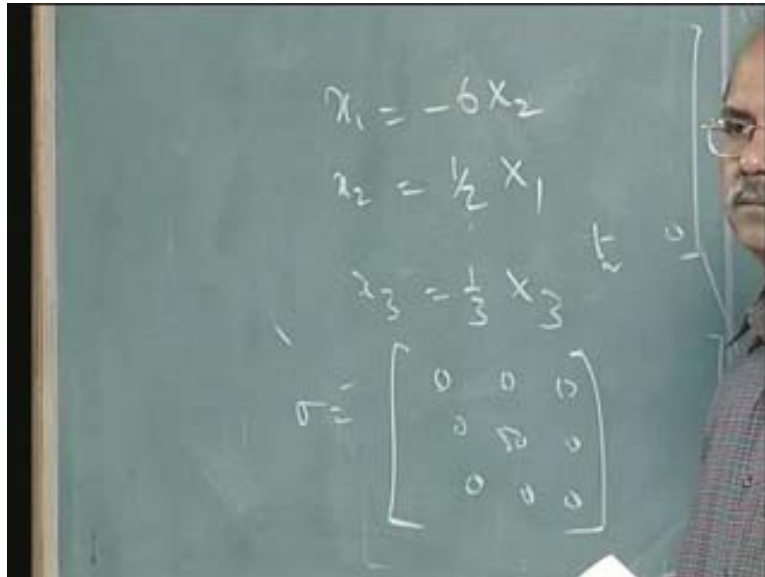 x₁ = -6X₂
x₂ = ½ X₁
x₃ = ⅓ X₃
σ = [ 0 0 0
0 50 0
0 0 0 ]